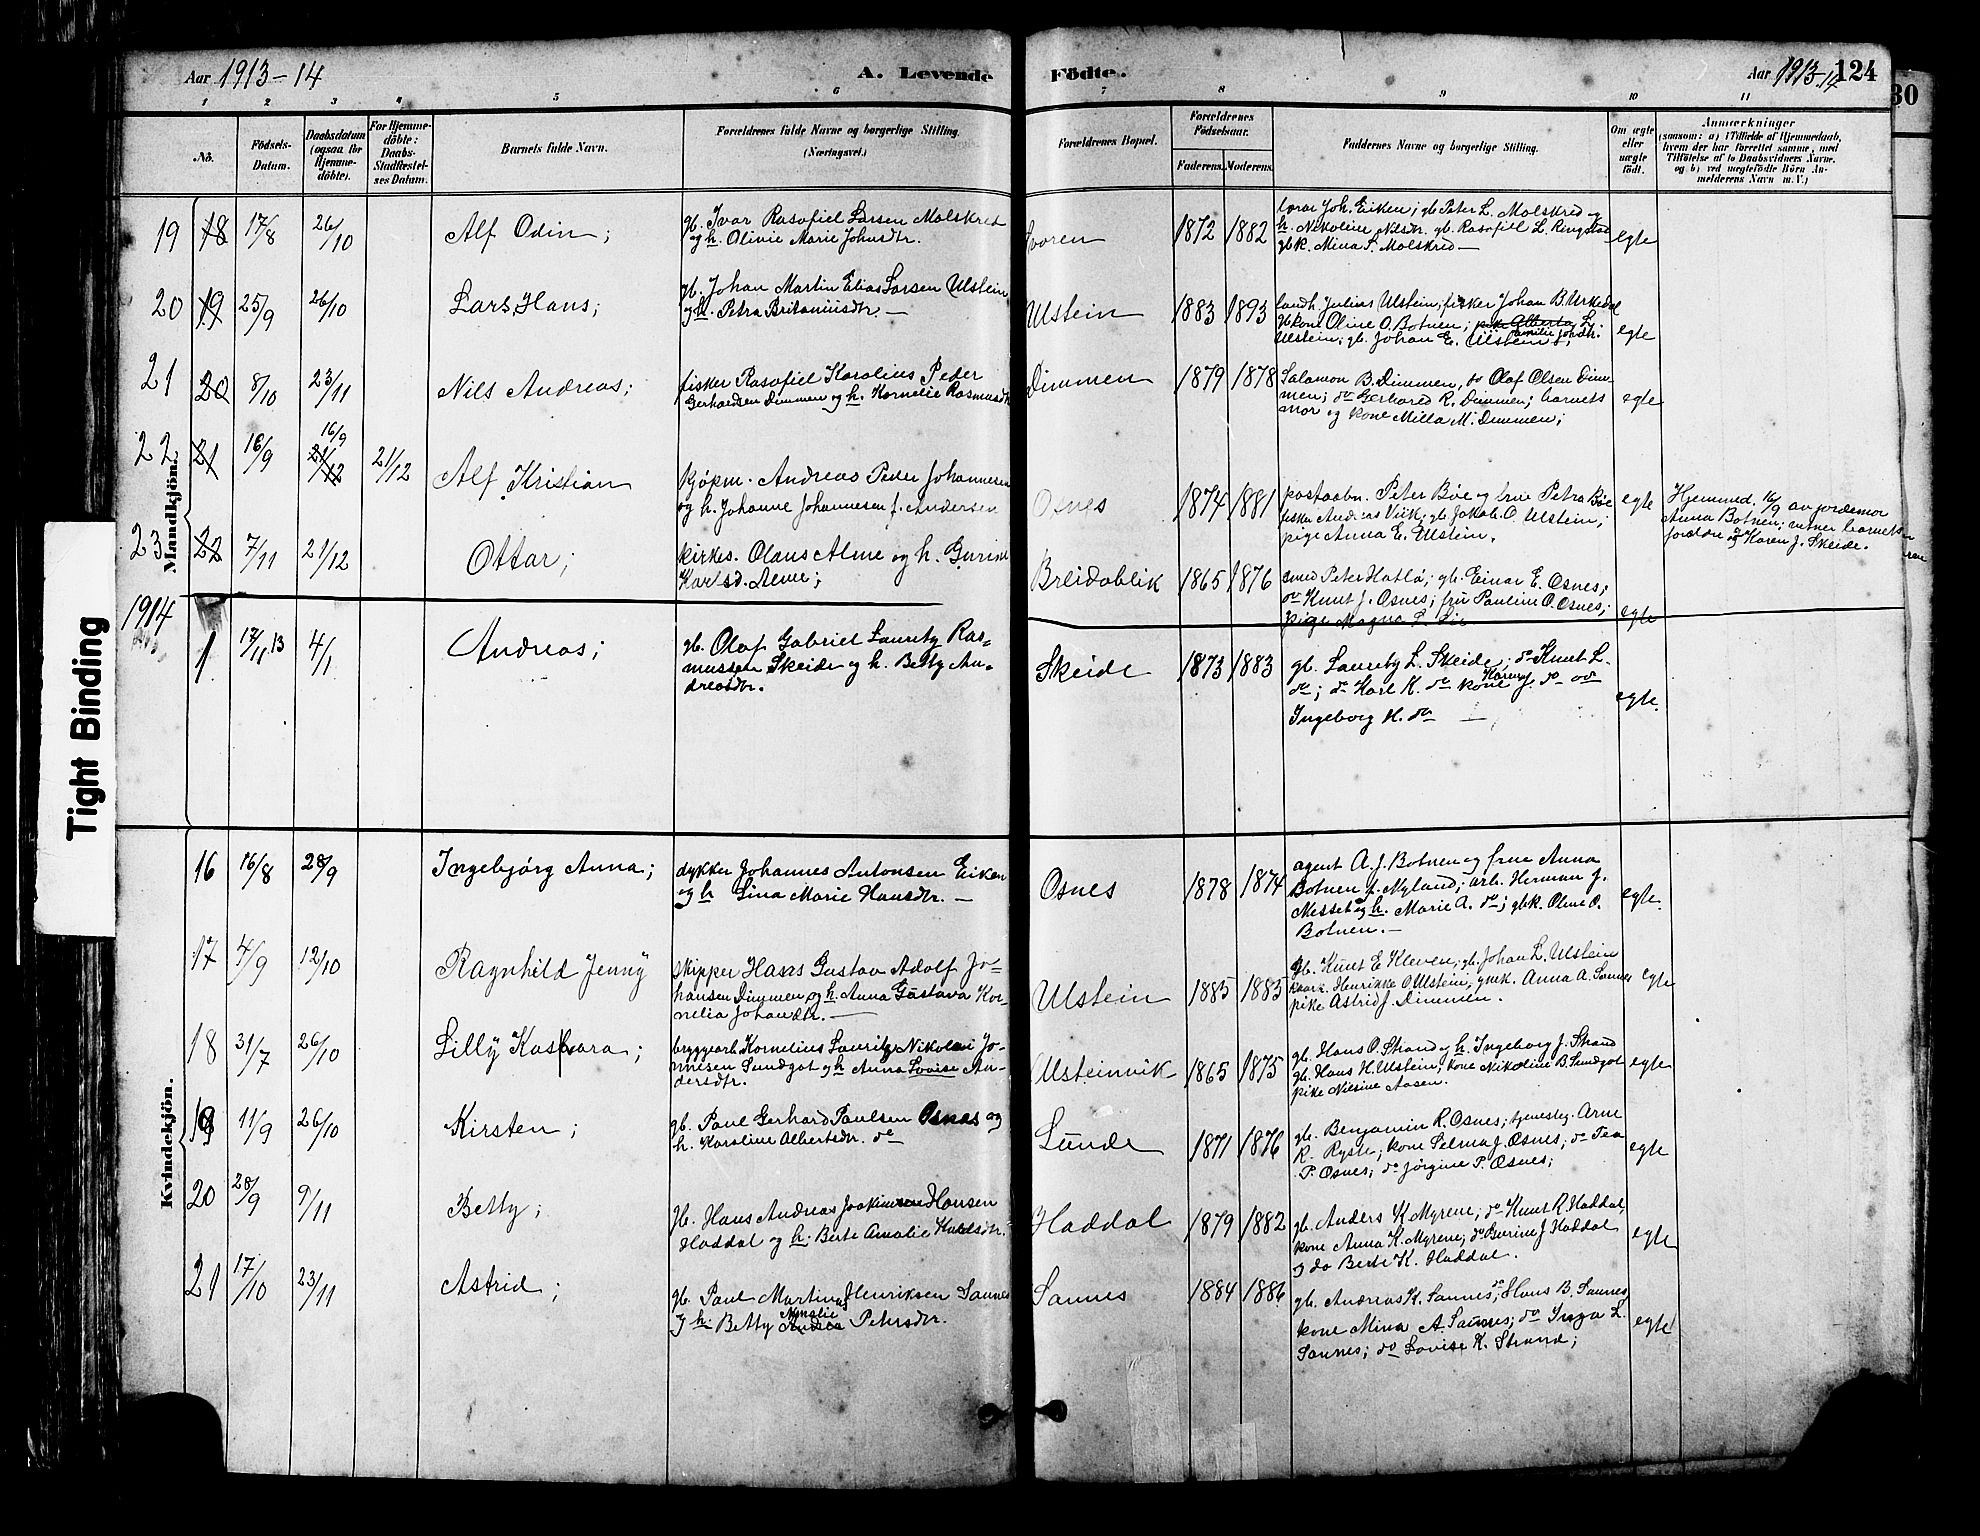 Aar 1913-14 A. Levende
1 2 3 4 5 6
No.
Födsels-
Datum.
Daabsdatum
(ogsaa for
Hjemme-
döbte).
For Hjemme-
döbte:
Daabs-
Stadfæstel-
ses Datum.
Barnets fulde Navn.
Forældrenes fulde Navne og borgerlige Stilling.
(Næringsvei.)
Mandkjön.
19 18 17/8 26/10 Alf Odin;
gb. Ivar Rasofiel Larsen Molskred
og h. Olivie Marie Johnsdtr.
20 19 25/9 26/10 Lars Hans;
gb. Johan Martin Elias Larsen Ulstein
og h. Petra Britaniusdtr. —
21 20 8/10 23/11 Nils Andreas;
fisker Rasofiel Karolius Peder
Gerhardsen Dimmen og h. Kornelie Rasmusdtr
22 21 16/9 16/9 21/12 21/12 Alf Kristian
kjøpm. Andreas Peder Johannesen
og h. Johanne Johannesen f. Andersen
23 22 7/11 21/12 Ottar;
kirkes. Olaus Alme og h. Gurine
Karlsd. Alme;
1914
1 17/11 13 4/1 Andreas;
gb. Olaf Gabriel Lauritz Ras-
mussen Skeide og h. Betty An-
dreasdtr.
Kvindekjön.
16 16/8 28/9 Ingebjørg Anna;
dykker Johannes Antonsen Eiken
og h. Lina Marie Hansdtr. —
17 4/9 12/10 Ragnhild Jenny
skipper Hans Gustav Adolf Jo-
hansen Dimmen og h. Anna Gustava Kor-
nelia Johandtr. —
18 31/7 26/10 Lilly Kaspara;
bryggearb. Kornelius Lauritz Nikolai Jo-
nnesen Sundgot og h. Anna Lovise An-
dersdtr.
19 11/9 26/10 Kirsten;
gb. Paul Gerhard Paulsen Osnes og
h. Karoline Albertsdr. do
20 28/9 9/11 Betty;
gb. Hans Andreas Joakim Hansen
Haddal og h. Berte Amalie Knutsdtr.
21 17/10 23/11 Astrid;
gb. Paul Martinus Henriksen Sannes
og h. Betty Andrea Amalie Petersdtr.
Födte. Aar 1913-14 124
30
7 8 9 10 11
Forældrenes Bopæl.
Forældrenes
Födselsaar.
Faderens. Moderens.
Faddernes Navne og borgerlige Stilling.
Om ægte
eller
uægte
födt.
Anmærkninger
(saasom: a) i Tilfælde af Hjemmedaab,
hvem der har forrettet samme, med
Tilföielse af to Daabsvidners Navne.
og b) ved uægtefödte Börn An-
melderens Navn m. V.)
1872 1882
lærar Joh. Eiken; gb. Peter L. Molskred og
h. Nikoline Nilsdr. gb. Rasofiel L. Ringstad
gbk. Mina S. Molskred —
egte
Ulstein 1883 1893
landh. Julius Ulstein; fisker Johan B. Urkedal
gbkone Oline O. Botnen; pike Alberta L.
Ulstein; gb. Johan E. Ulstein;
egte
Dimmen 1879 1878
Salamon B. Dimmen, do Olaf Olsen Dim-
men; do Gerhard R. Dimmen; barnets
mor og kone Milla M. Dimmen;
egte
Osnes 1874 1881
postaabn. Peter Bøe og frue Petra Bøe
fisker Andreas Viik; gb. Jakob O. Ulstein;
pige Anna E. Ulstein.
egte
Hjemmed. 16/9 av jordemor
Anna Botnen; vitner barnets
forældre og Karen J. Skeide.
Breidablik 1865 1876
smed Peter Hatlø; gb. Einar E. Osnes;
do Knut J. Osnes; fru Pauline O. Osnes;
pige Magna L. Lie
egte
Skeide 1873 1883
gb. Lauritz L. Skeide; do Knut L.
do; do Karl K. do kone Karen J. do og
Ingeborg K. do —
egte.
Osnes 1878 1874
agent A. J. Botnen og frue Anna
Botnen f. Nyland; arb. Herman J.
Messet og h. Marie A. do; gbk. Oline O.
Botnen. —
egte.
Ulstein 1885 1883
gb. Knut E. Kleven; gb. Johan L. Ulstein
Henrikke O Ulstein; Anna A. Sannes
pike Astrid J. Dimmen.
egte
Ulsteinvik 1865 1875
gb. Hans O. Strand og h. Ingeborg J. Strand
gb. Hans H. Ulstein; kone Nikoline B. Sundgot
pike Nilsine Aasen.
egte
Lunde 1871 1876
gb. Benjamin R. Osnes; tjenestg. Arne
R. Ryste; kone Selma J. Osnes; do Tea
P. Osnes; do Jørgine P. Osnes;
egte
Haddal 1879 1882
gb. Anders K Myrene; do Knut R. Haddal,
kone Anna K. Myrene; do Gurine J Haddal
og do Berte K. Haddal.
egte
Sannes 1884 1886
gb. Andreas K. Sannes; do Hans B. Sannes,
kone Mina A. Sannes; do Inga L.
Sannes; do Lovise K. Strand;
egte
Tight Binding